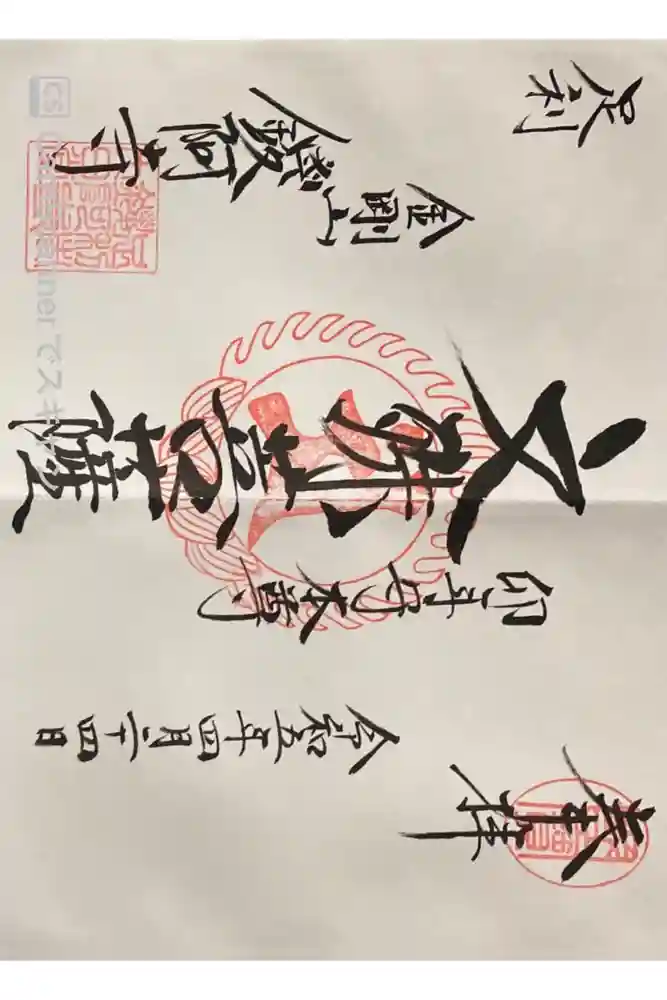 奉拝
令和五年四月二十四日
卯年守本尊
文殊菩薩
足利
金剛山
鑁阿寺
CS CamScanner でスキャ